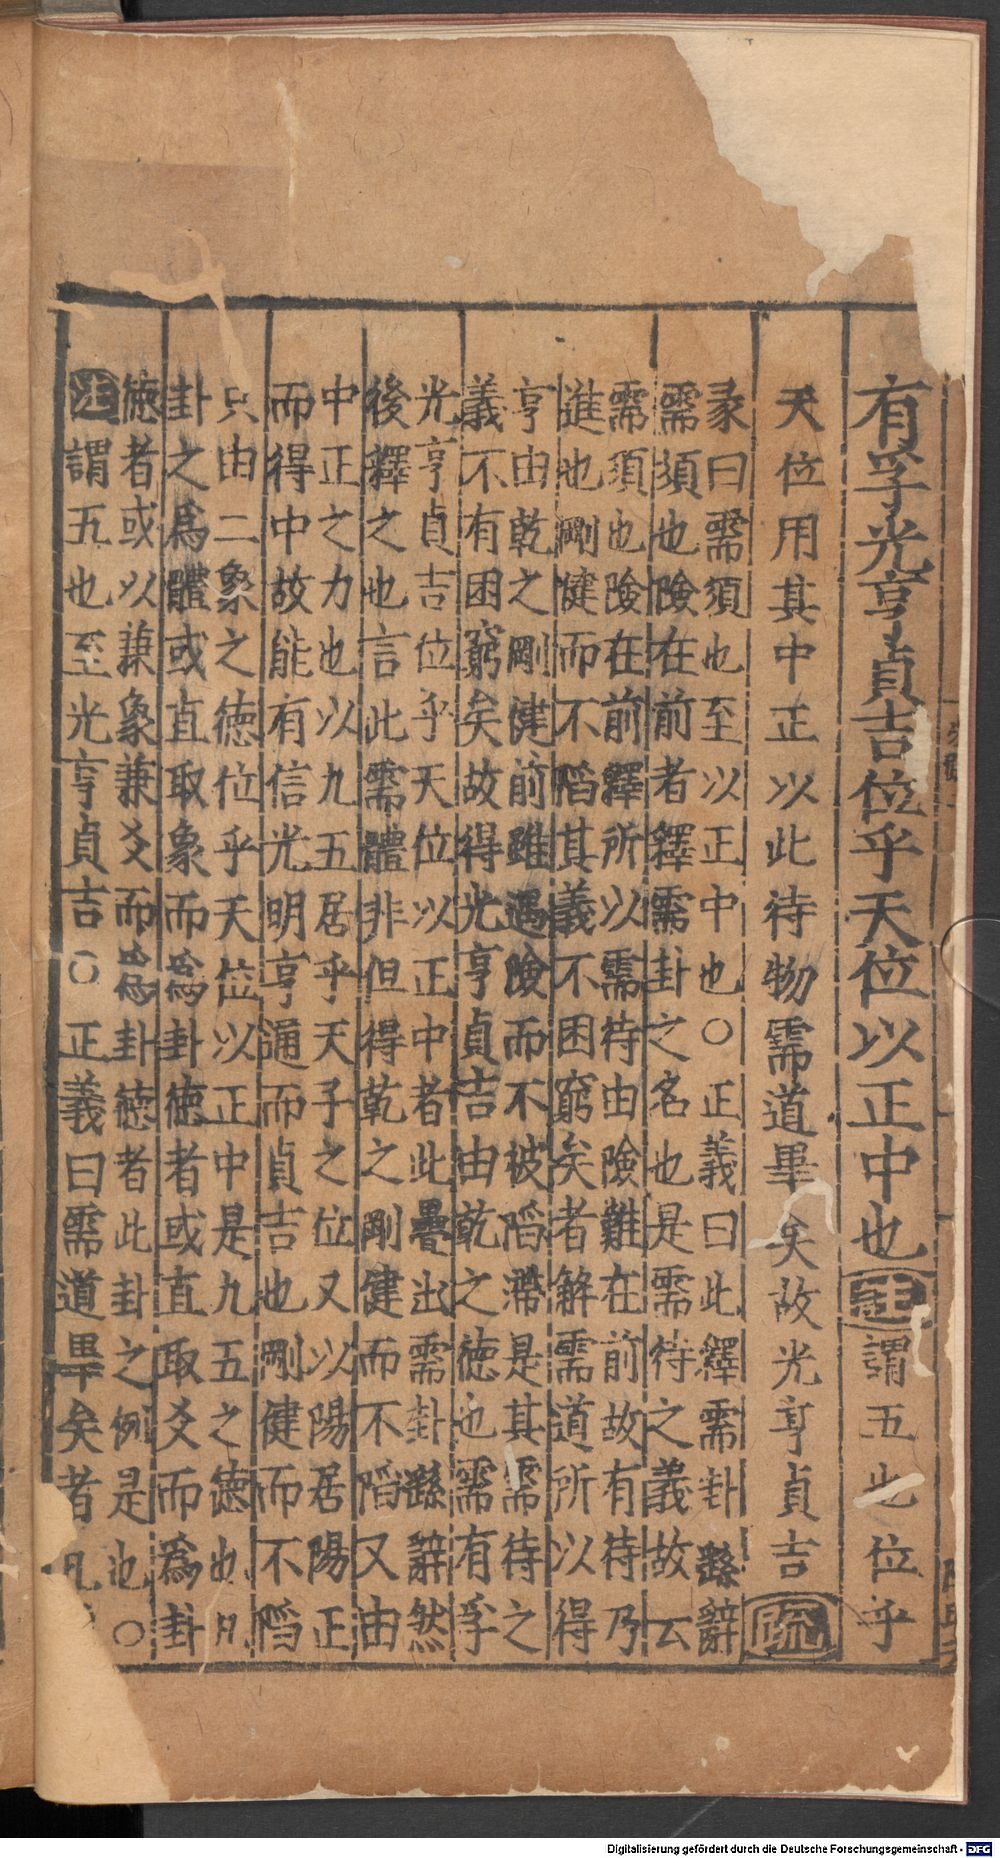 有孚光亨貞吉位乎天位以正中也注謂五也位乎
天位用其中正以此待物需道畢矣故光亨貞吉疏
彖曰需須也至以正中也○正義曰此繹需卦繇辭
需須也險在前者釋需卦之名也是需待之義故云
需須也險在前釋所以需待由險難在前故有待乃
進也剛健而不陷其義不困窮矣者解需道所以得
亨由乾之剛健前雖遇險而不被陷滯是其需待之
義不有困窮矣故得光亨貞吉由乾之德也需有孚
光亨貞吉位乎天位以正中者此疊出需卦繇辭然
後釋之也言此需體非但得乾之剛健而不陷又由
中正之力也以九五居乎天子之位又以陽居陽正
而得中故能有信光明亨通而貞吉也剛健而不陷
只由二象之德位乎天位以正中是九五之德也凡
卦之爲體或直取象而爲卦德者或直取爻而爲卦
德者或以兼象兼爻而爲卦德者此卦之例是也○
注謂五也至光亨貞吉○正義曰需道畢矣者凡
Digitalisierung gefördert durch die Deutsche Forschungsgemeinschaft - DFG